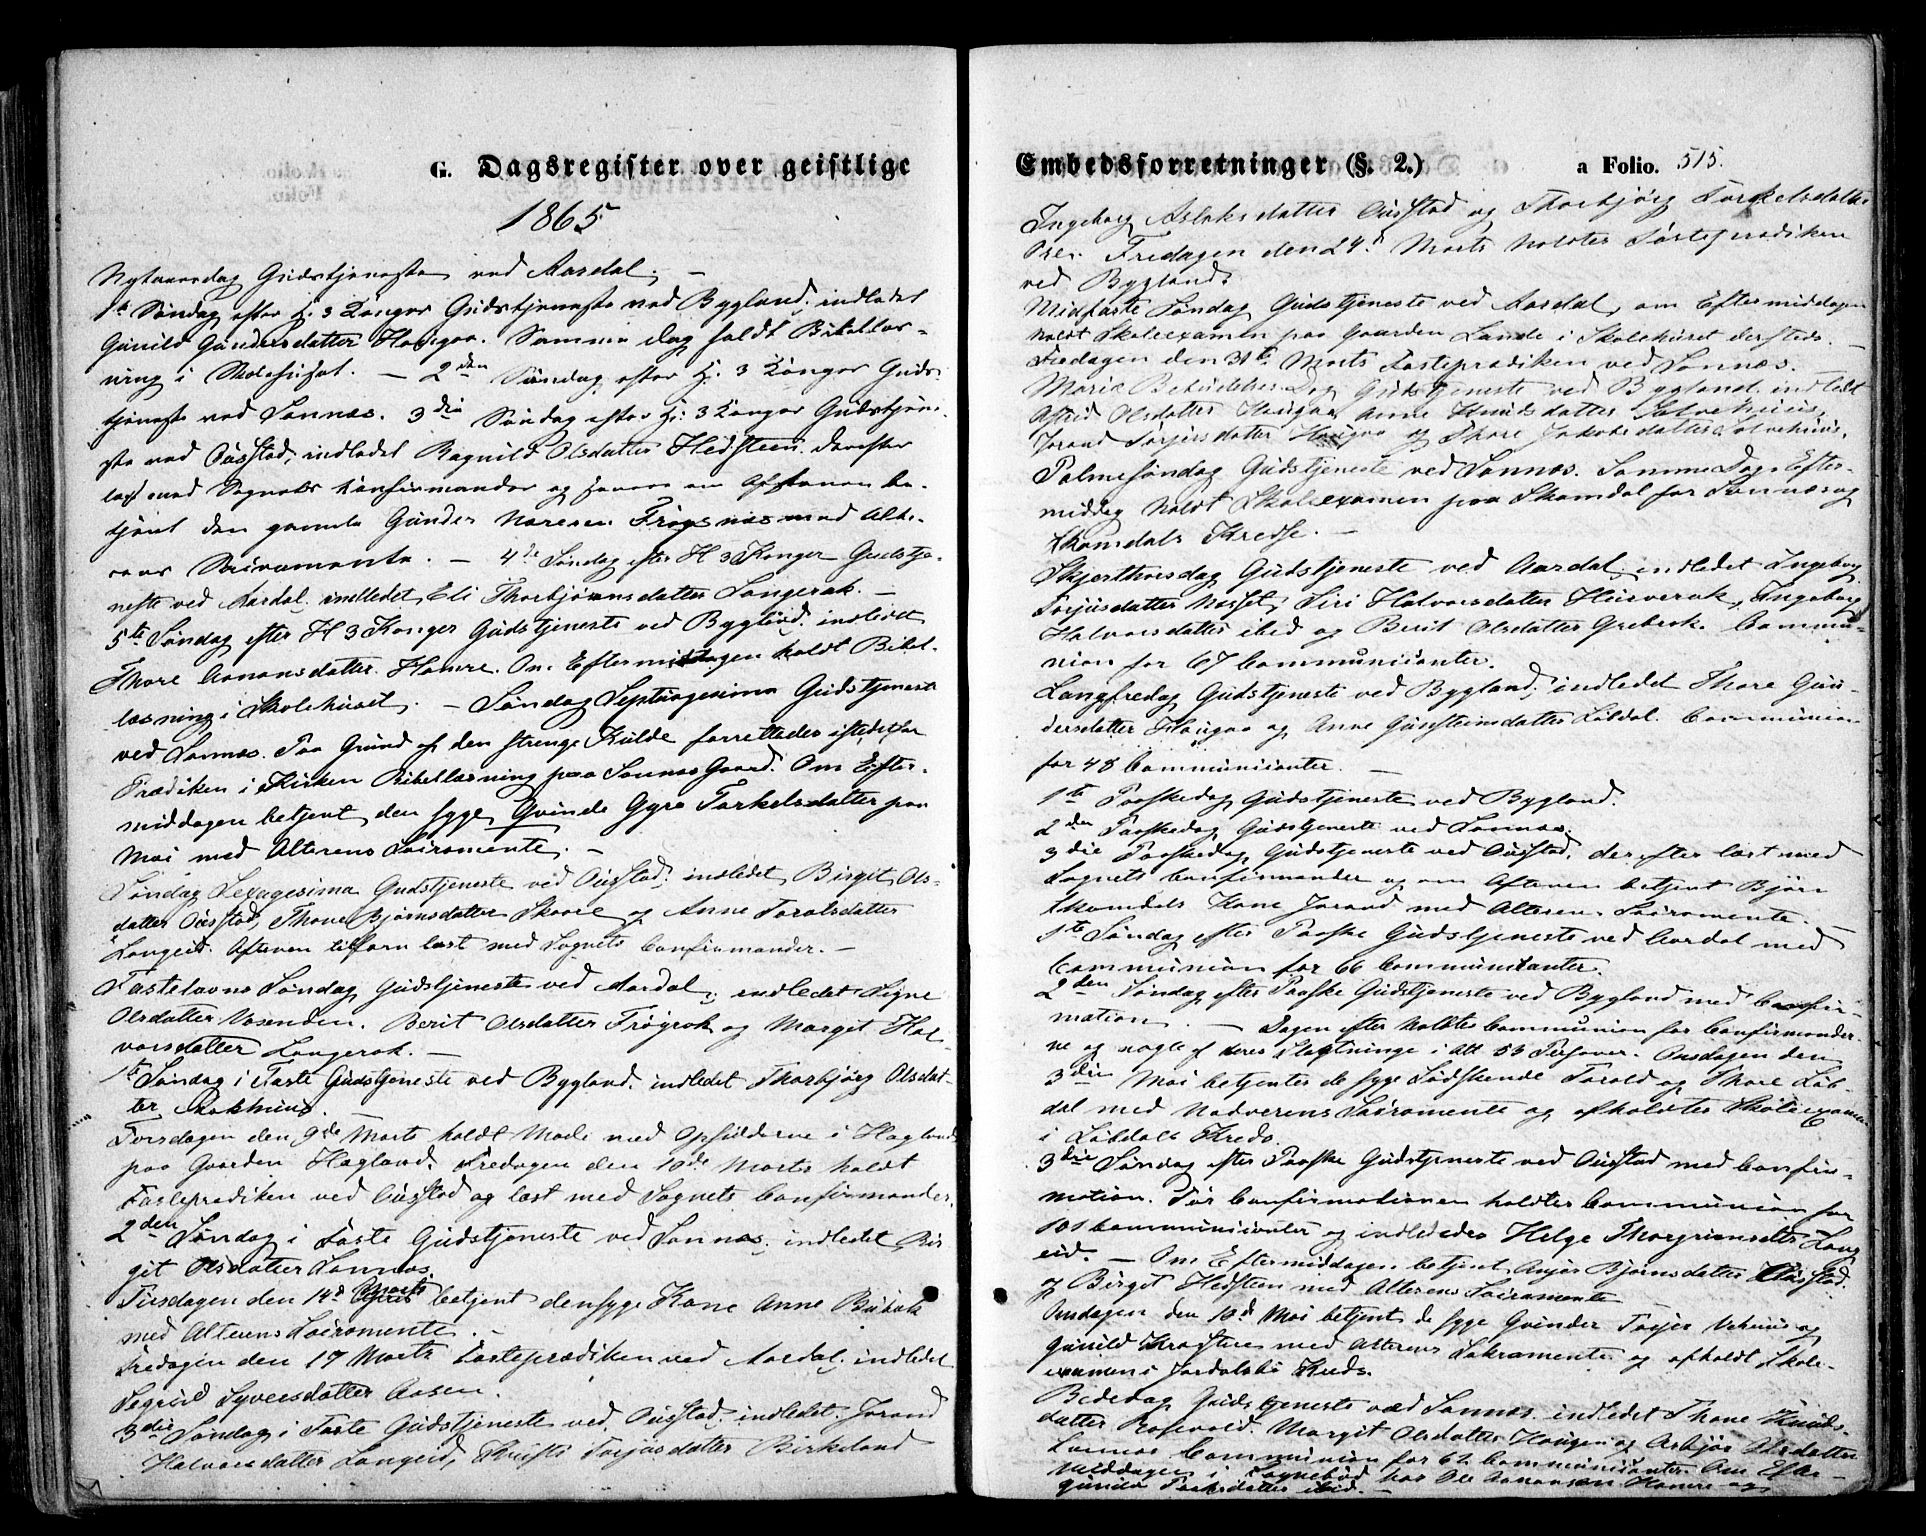 G. Dagsregister over geistlige
1865
Nytaarsdag Gudstjeneste ved Aardal. —
1ste Søndag efter H. 3 Konger Gudstjeneste ved Bygland; indledet
Gunild Gundersdatter Haugaa. Samme Dag holdt Bibellæs-
ning i Skolehuset. — 2den Søndag efter H. 3 Konger Guds-
tjeneste ved Sannæs. 3die Søndag efter H. 3 Konger Gudstjene-
ste ved Ousstad; indledet Ragnild Olsdatter Hedsteen. Derefter
læst med Sognets Konfirmander og senere om Aftenen be-
tjent den gamle Gunder Frøysnæs med Alte-
rens Sacramente. — 4de Søndag efter H 3 Konger Gudstje-
neste ved Aardal. indledet Eli Thorbjørnsdatter Langerak. —
5te Søndag efter H 3 Konger Gudstjeneste ved Bygland. indledet
Thore Aanonsdatter Hamre. Om Eftermiddagen holdt Bibel-
læsning i Skolehuset. — Søndag Septuagesima Gudstjeneste
ved Sannæs. Paa Grund af den strenge Kulde forrettedes istedetfor
Prædiken i Kirken Bibellæsning paa Sannæs Gaard. Om Efter-
middagen betjent den syge Qvinde Gyro Torkelsdatter paa
Moi med Alterens Sacramente. —
Søndag Sexagesima Gudstjeneste ved Ousstad; indledet Birgit Ols-
datter Ousstad, Thone Bjørnsdatter Skaare og Anne Taralsdatter
Langeid. Aftenen tilforn læst med Sognets Confirmander. —
Fastelavns Søndag Gudstjeneste ved Aardal; indledet Signe
Olsdatter Vasenden. Berit Olsdatter Frøyrak og Margit Hal-
vorsdatter Langerak. —
1ste Søndag i Faste Gudstjeneste ved Bygland. indledet Thorbjørg Olsdat-
ter
Torsdagen den 9de Marts holdt Møde med Opsidderne i Hagland
paa Gaarden Hagland. Fredagen den 10de Marts holdt
Fasteprædiken ved Ousstad og læst med Sognets Confirmander.
2den Søndag i Faste Gudstjeneste ved Sannæs; indledet Bir-
git Olsdatter Sannæs.
Tirsdagen den 14d Marts betjent den syge Kone Anne
med Alterens Sacramente. —
Fredagen den 17 Marts Fasteprædiken ved Aardal; indledet
Segrid Syversdatter Aasen.
3die Søndag i Faste Gudstjeneste ved Ousstad; indledet Jorand
Halvorsdatter Langeid, Torjusdatter Birkeland
Embedsforretninger (§. 2.)
a Folio. 515.
Ingeborg Aslaksdatter Ousstad og Thorbjørg Torkelsdatter
Ose. Fredagen den 24d Marts holdtes Fasteprædiken
ved Bygland.
Midfaste Søndag Gudstjeneste ved Aardal, om Eftermiddagen
holdt Skoleexamen paa Gaarden Lande i Skolehuset dersteds. —
Fredagen den 31te Marts Fasteprædiken ved Sannæs.
Mariæ Bebudelses Dag Gudstjeneste ved Bygland. indledt
Astrid Olsdatter Haugaa, Anne Knudsdatter
Jorand Torjusdatter Haugaa og Thore Jakobsdatter
Palmesøndag Gudstjeneste ved Sannæs. Samme Dags Efter-
middag holdt Skoleexamen paa Skomdal for Sannæs og
Skomdals Kredse. —
Skjærthorsdag Gudstjeneste ved Aardal; indledet Ingeborg
Torjusdatter Næsset, Siri Halvorsdatter Hurverak, Ingeborg
Halvorsdatter ibid og Berit Olsdatter Grebrok. Commu-
nion for 67 Communicanter.
Langfredag Gudstjeneste ved Bygland; indledet Thore Gun-
dersdatter Haugaa og Anne Gunsteinsdatter Lidtal. Communion
for 48 Communicanter. —
1ste Paaskedag Gudstjeneste ved Bygland.
2den Paaskedag Gudstjeneste ved Sannæs.
3die Paaskedag Gudstjeneste ved Ousstad, derefter læst med
Sognets Confirmander og om Aftenen betjent Bjørn
Skomdals Kone Jorand med Alterens Sacramente. —
1ste Søndag efter Paaske Gudstjeneste ved Aardal med
Communion for 66 Communicanter.
2den Søndag efter Paaske Gudstjeneste ved Bygland med Confir-
mation. — Dagen efter holdtes Communion for Confirmander-
ne og nogle af deres Slægtninge i Alt 53 Personer. Onsdagen den
3die Mai betjentes de syge Sødskende Torald og Thore Lid-
dal med Nadverens Sacramente og afholdtes Skoleexamen
i Lidtals Kreds.
3die Søndag efter Paaske Gudstjeneste ved Ousstad med Confir-
mation. Før Confirmationen holdtes Communion for
101 Communicanter og indlededes Helge Thorgrimsdatter Lang-
eid. — Om Eftermiddagen betjent Bjørnsdatter Ousstad
og Birgit Hedsteen med Alterens Sacramente.
Onsdagen den 10d Mai betjent de syge Qvinder og
Gunild med Alterens Sakramente og afholdt Skole-
examen i Jordalsbø Kreds.
Bededag Gudstjeneste ved Sannæs. indledet Thone Knuds-
datter Rosevold. Margit Olsdatter Haugen og Asbjør Olsdatter
Sannæs. Communion for 62 Communicanter. Om Efter-
middagen i Sognebud hos Ole Aanonsen Hamre og
Gunild Torkelsdatter ibid. —